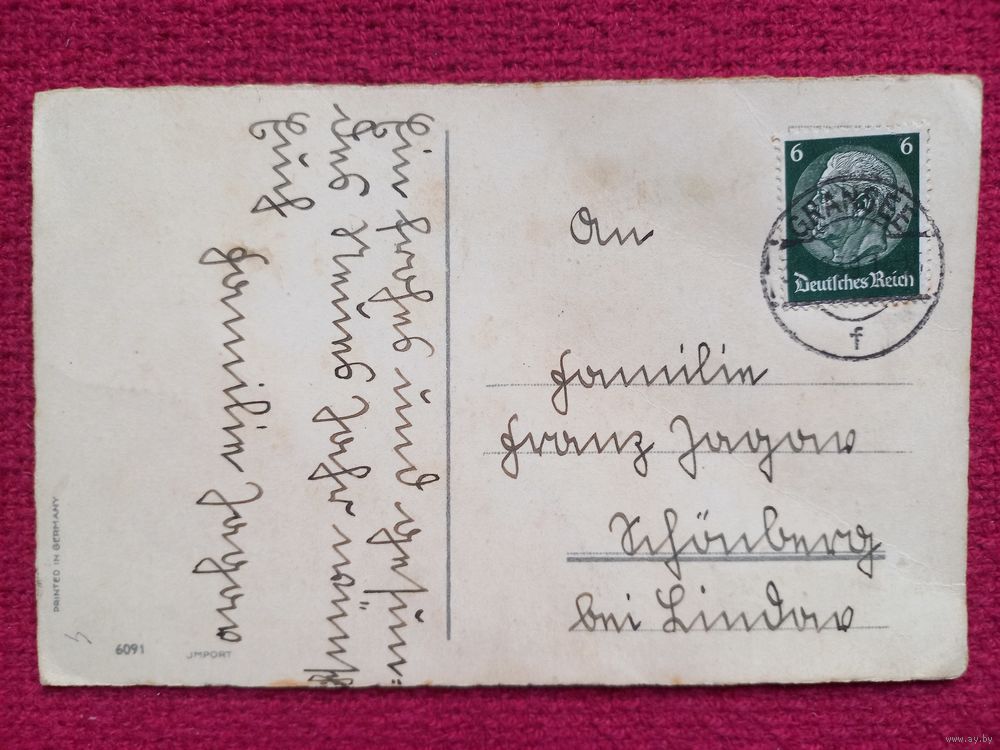 Ein frohes und gesun=
des neues Jahr wünscht
Euch
Familie Jagow
6 6
Deutsches Reich
GRANSEE
f
An
Familie
Franz Jagow
Schönberg
bei Lindow
PRINTED IN GERMANY
6091 JMPORT
www.ay.by